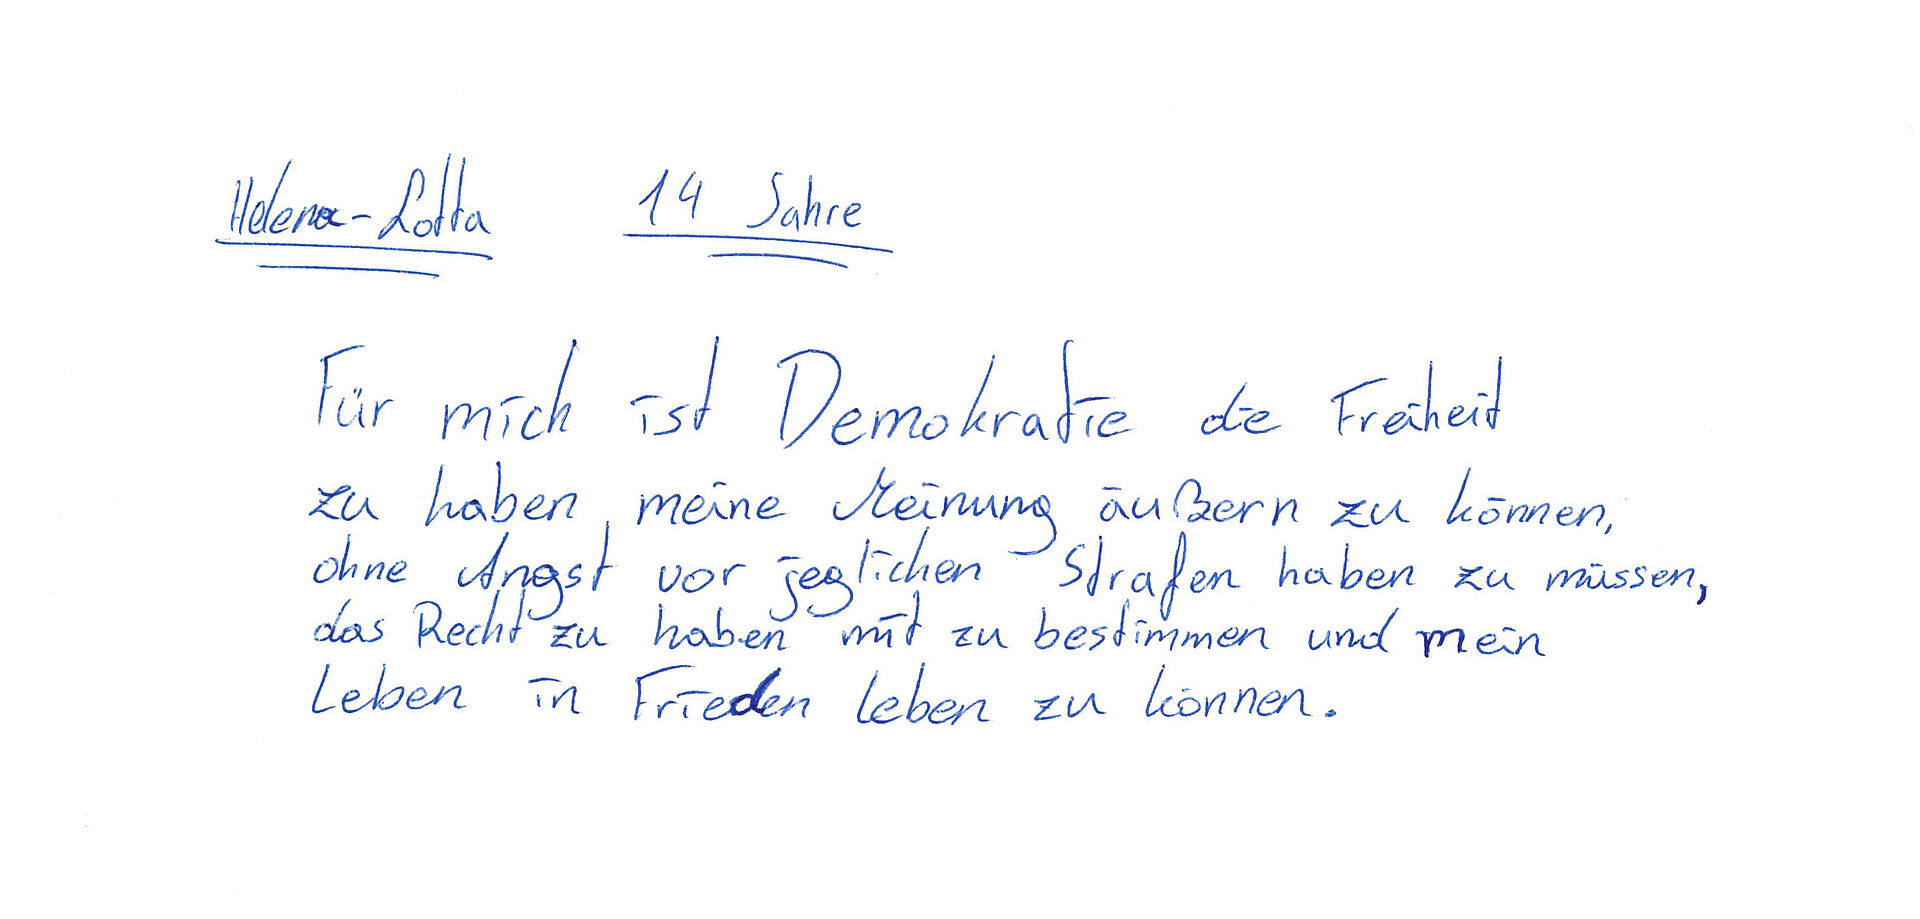 Helena-Lotta 14 Jahre
Für mich ist Demokratie die Freiheit
zu haben, meine Meinung äußern zu können,
ohne Angst vor jeglichen Strafen haben zu müssen,
das Recht zu haben mit zu bestimmen und mein
Leben in Frieden leben zu können.